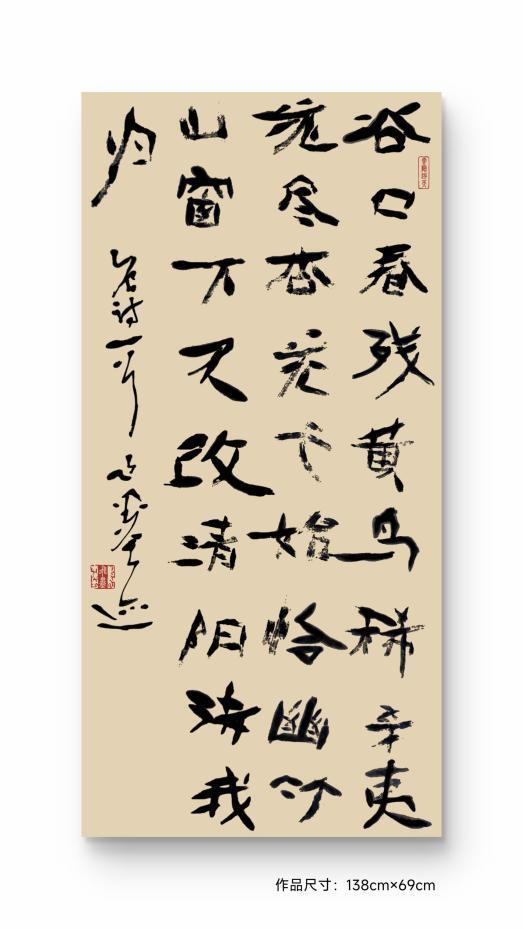 谷口春残黄鸟稀辛夷
花尽杏花飞始怜幽竹
山窗下不改清阴待我
归
诗一首
作品尺寸：138cm×69cm